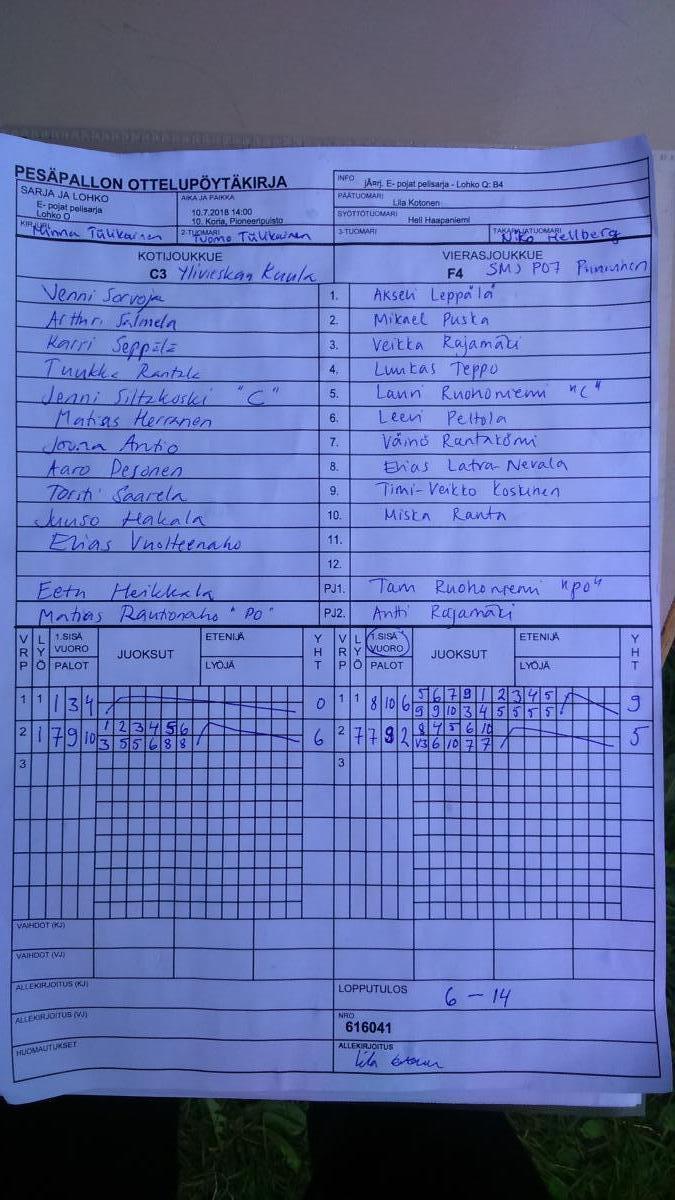 PESÄPALLON OTTELUPÖYTÄKIRJA
INFO jÄ¤rj. E- pojat pelisarja - Lohko Q: B4
SARJA JA LOHKO E- pojat pelisarja Lohko Q
AIKA JA PAIKKA 10.7.2018 14:00 10. Koria, Pioneeripuisto
PÄÄTUOMARI Lila Kotonen
SYÖTTÖTUOMARI Heli Haapaniemi
KIRJURI Minna Tulikainen 2-TUOMARI Tuomo Tulikainen 3-TUOMARI TAKARAJATUOMARI Niko Hellberg
KOTIJOUKKUE C3 Ylivieskan Kuula
VIERASJOUKKUE F4 SMJ P07 Punainen
Venni Sorvoja 1. Akseli Leppälä
Artturi Salmela 2. Mikael Puska
Karri Seppälä 3. Veikka Rajamäki
Tuukka Rantala 4. Luukas Teppo
Jenni Siltakoski "C" 5. Lauri Ruohoniemi "C"
Matias Herranen 6. Leevi Peltola
Joona Antio 7. Väinö Rantakömi
Aaro Pesonen 8. Elias Latva-Nevala
Torsti Saarela 9. Timi-Veikko Koskinen
Juuso Hakala 10. Miska Ranta
Elias Vuolteenaho 11.
12.
Eetu Heikkala PJ1. Tam Ruohoniemi "PO"
Matias Rautionaho "PO" PJ2. Antti Rajamäki
VRP LYÖ 1.SISÄ VUORO PALOT JUOKSUT ETENIJÄ LYÖJÄ YHT VRP LYÖ 1.SISÄ VUORO PALOT JUOKSUT ETENIJÄ LYÖJÄ YHT
1 1 1 3 4 0 1 1 8 10 6 5 6 7 9 1 2 3 4 5 9
9 9 10 3 4 5 5 5 5
2 1 7 9 10 1 2 3 4 5 6 6 2 7 7 9 2 8 4 5 6 10 5
3 5 5 6 8 8 V3 6 10 7 7
3 3
VAIHDOT (KJ)
VAIHDOT (VJ)
ALLEKIRJOITUS (KJ) LOPPUTULOS 6 - 14
ALLEKIRJOITUS (VJ) NRO 616041
HUOMAUTUKSET ALLEKIRJOITUS